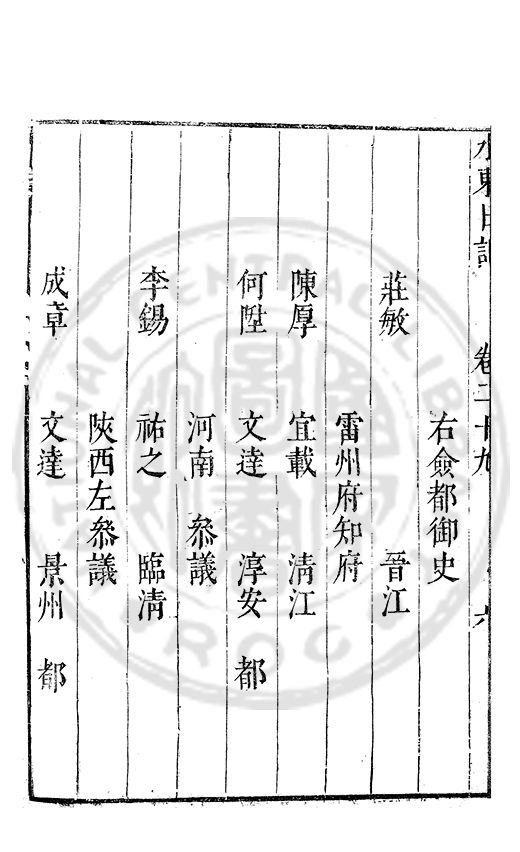 水東日記 卷二十九 六
右僉都御史
莊敏 晉江
雷州府知府
陳厚 宜載 清江
何陞 文達 淳安 都
河南 叅議
李錫 祐之 臨清
陝西左叅議
成章 文達 景州 都